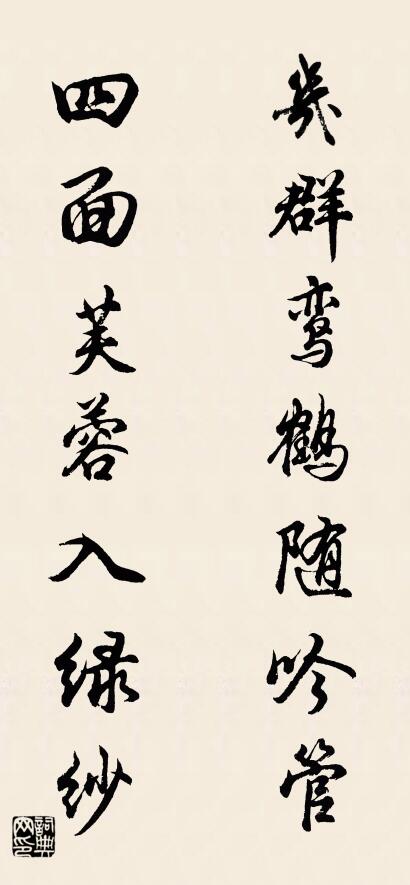 幾群鸾鹤随吟管
四面芙蓉入绿纱
詞典网印